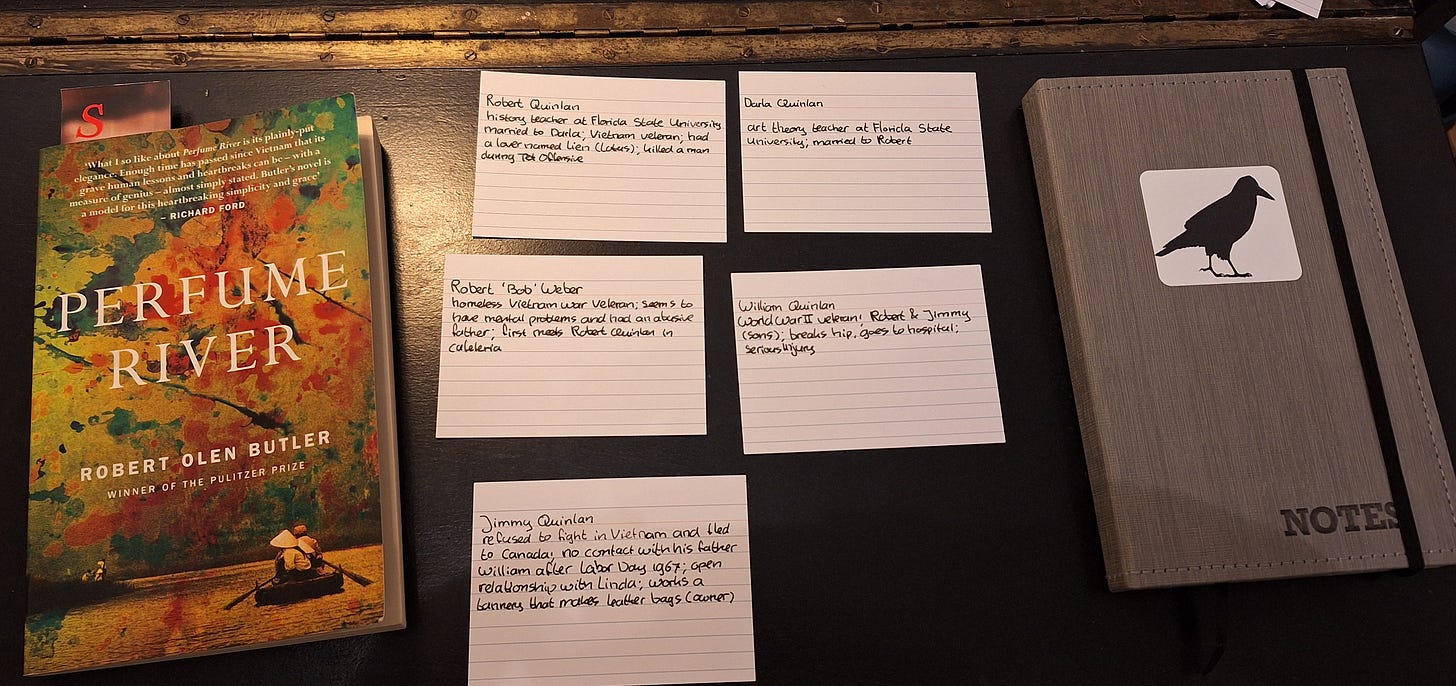 S
'What I so like about Perfume River is its plainly-put
elegance. Enough time has passed since Vietnam that its
grave human lessons and heartbreaks can be – with a
measure of genius – almost simply stated. Butler's novel is
a model for this heartbreaking simplicity and grace'
– RICHARD FORD
PERFUME
RIVER
ROBERT OLEN BUTLER
WINNER OF THE PULITZER PRIZE
Robert Quinlan
history teacher at Florida State University
married to Darla; Vietnam veteran; had
a lover named Lien (Lotus); killed a man
during Tet Offensive
Darla Quinlan
art theory teacher at Florida State
University; married to Robert
Robert 'Bob' Weber
homeless Vietnam war veteran; seems to
have mental problems and had an abusive
father; first meets Robert Quinlan in
cafeteria
William Quinlan
World War II veteran; Robert & Jimmy
(sons); breaks hip, goes to hospital;
serious injury
Jimmy Quinlan
refused to fight in Vietnam and fled
to Canada; no contact with his father
William after Labor Day 1967; open
relationship with Linda; works a
tannery that makes leather bags (owner)
NOTES